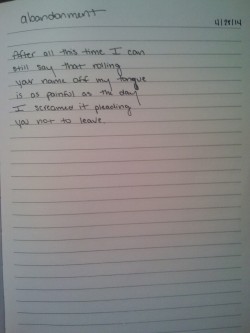 abandonment
4/29/14
After all this time I can
still say that rolling
your name off my tongue
is as painful as the day
I screamed it pleading
you not to leave